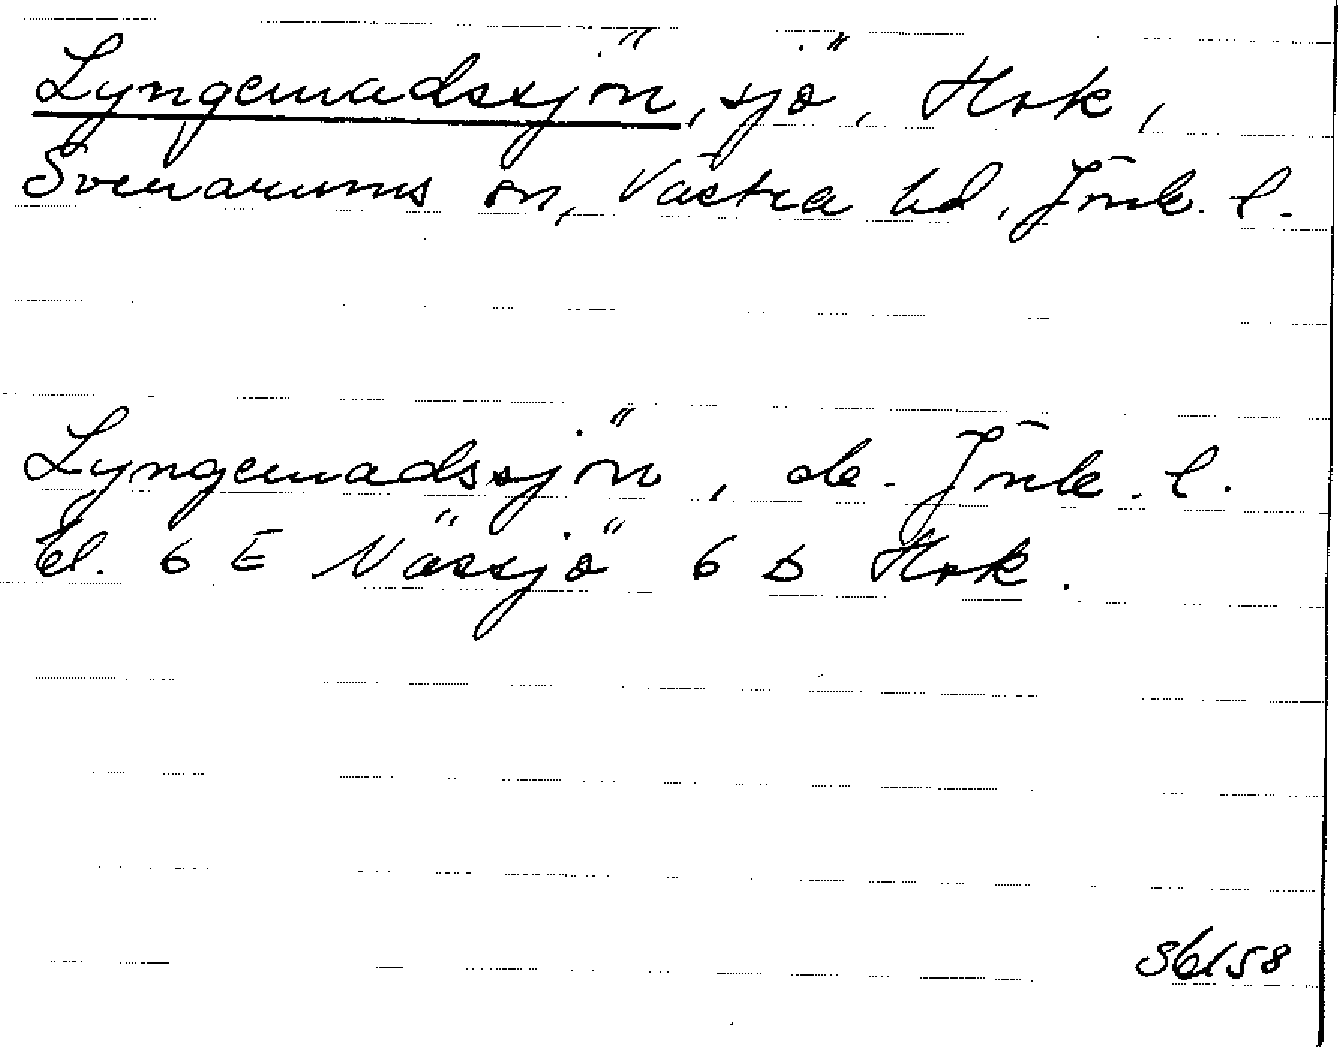 Lyngemadssjön, sjö, Hok,
Svenarums sn, Västra hd, Jönk. l.
Lyngemadssjön, de. Jönk. l.
bl. 6 E Nässjö 6 b Hok.
S6/58